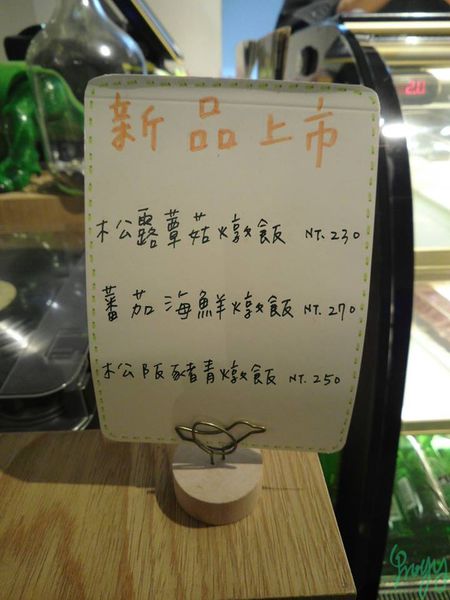 新品上市
松露蕈菇燉飯 NT.230
蕃茄海鮮燉飯 NT.270
松阪豬青燉飯 NT.250